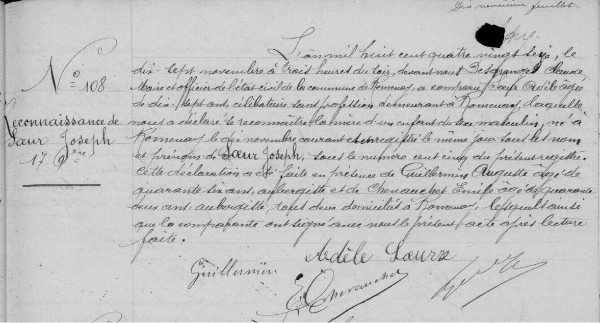 Dix neuvième feuillet
N° 108
Reconnaissance de
Sœur Joseph
17 9bre
L'an mil huit cent quatre vingt seize, le
dix-sept novembre à trois heures du soir, devant nous Desgranges Claude
Maire et officier de l'état civil de la commune de Romenay, a comparu Sœur Adèle âgée
de dix-sept ans, célibataire sans profession demeurant à Romenay, laquelle
nous a déclaré se reconnaître la mère d'un enfant du sexe masculin, né à
Romenay le dix novembre courant et enregistré le même jour sous les nom
et prénoms de Sœur Joseph, sous le numéro cent cinq du présent registre.
Cette déclaration a été faite en présence de Guillermin Auguste âgé de
quarante six ans, aubergiste et de Chevauchet Emile âgé de quarante
deux ans, aubergiste, tous deux domiciliés à Romenay, lesquels ainsi
que la comparante ont signé avec nous le présent acte après lecture
faite.
Adèle
Guillermin
E. Chevauchet